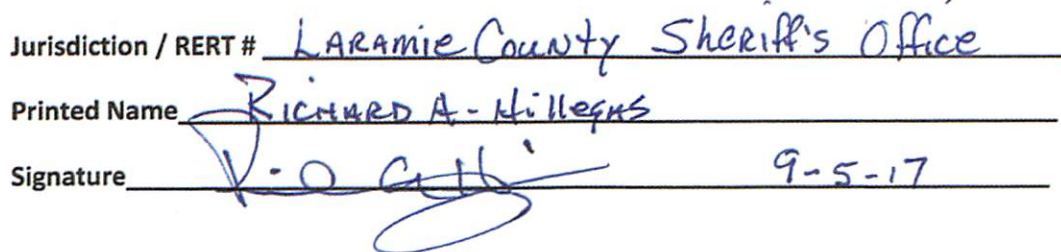 Jurisdiction / RERT # Laramie County Sheriff's Office
Printed Name Richard A. Hillegas
Signature 9-5-17